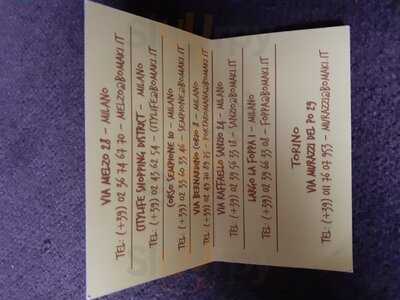 VIA MELZO 28 – MILANO
TEL: (+39) 02 36 74 67 70 – MELZO@BOMAKI.IT
CITYLIFE SHOPPING DISTRICT – MILANO
TEL: (+39) 02 43 62 54 – CITYLIFE@BOMAKI.IT
CORSO SEMPIONE 10 – MILANO
TEL: (+39) 02 33 60 33 46 – SEMPIONE@BOMAKI.IT
VIA BERNARDINO CORIO 8 – MILANO
TEL: (+39) 02 43 71 89 75 – PORTAROMANA@BOMAKI.IT
VIA RAFFAELLO SANZIO 24 – MILANO
TEL: (+39) 02 39 52 33 18 – SANZIO@BOMAKI.IT
LARGO LA FOPPA 1 – MILANO
TEL: (+39) 02 39 66 33 02 – FOPPA@BOMAKI.IT
TORINO
VIA MURAZZI DEL PO 29
TEL: (+39) 011 76 07 953 – MURAZZI@BOMAKI.IT